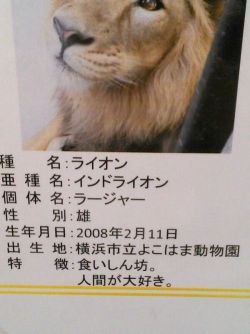 種　　名：ライオン
亜 種 名：インドライオン
個 体 名：ラージャー
性　　別：雄
生年月日：2008年2月11日
出 生 地：横浜市立よこはま動物園
特　　徴：食いしん坊。
人間が大好き。